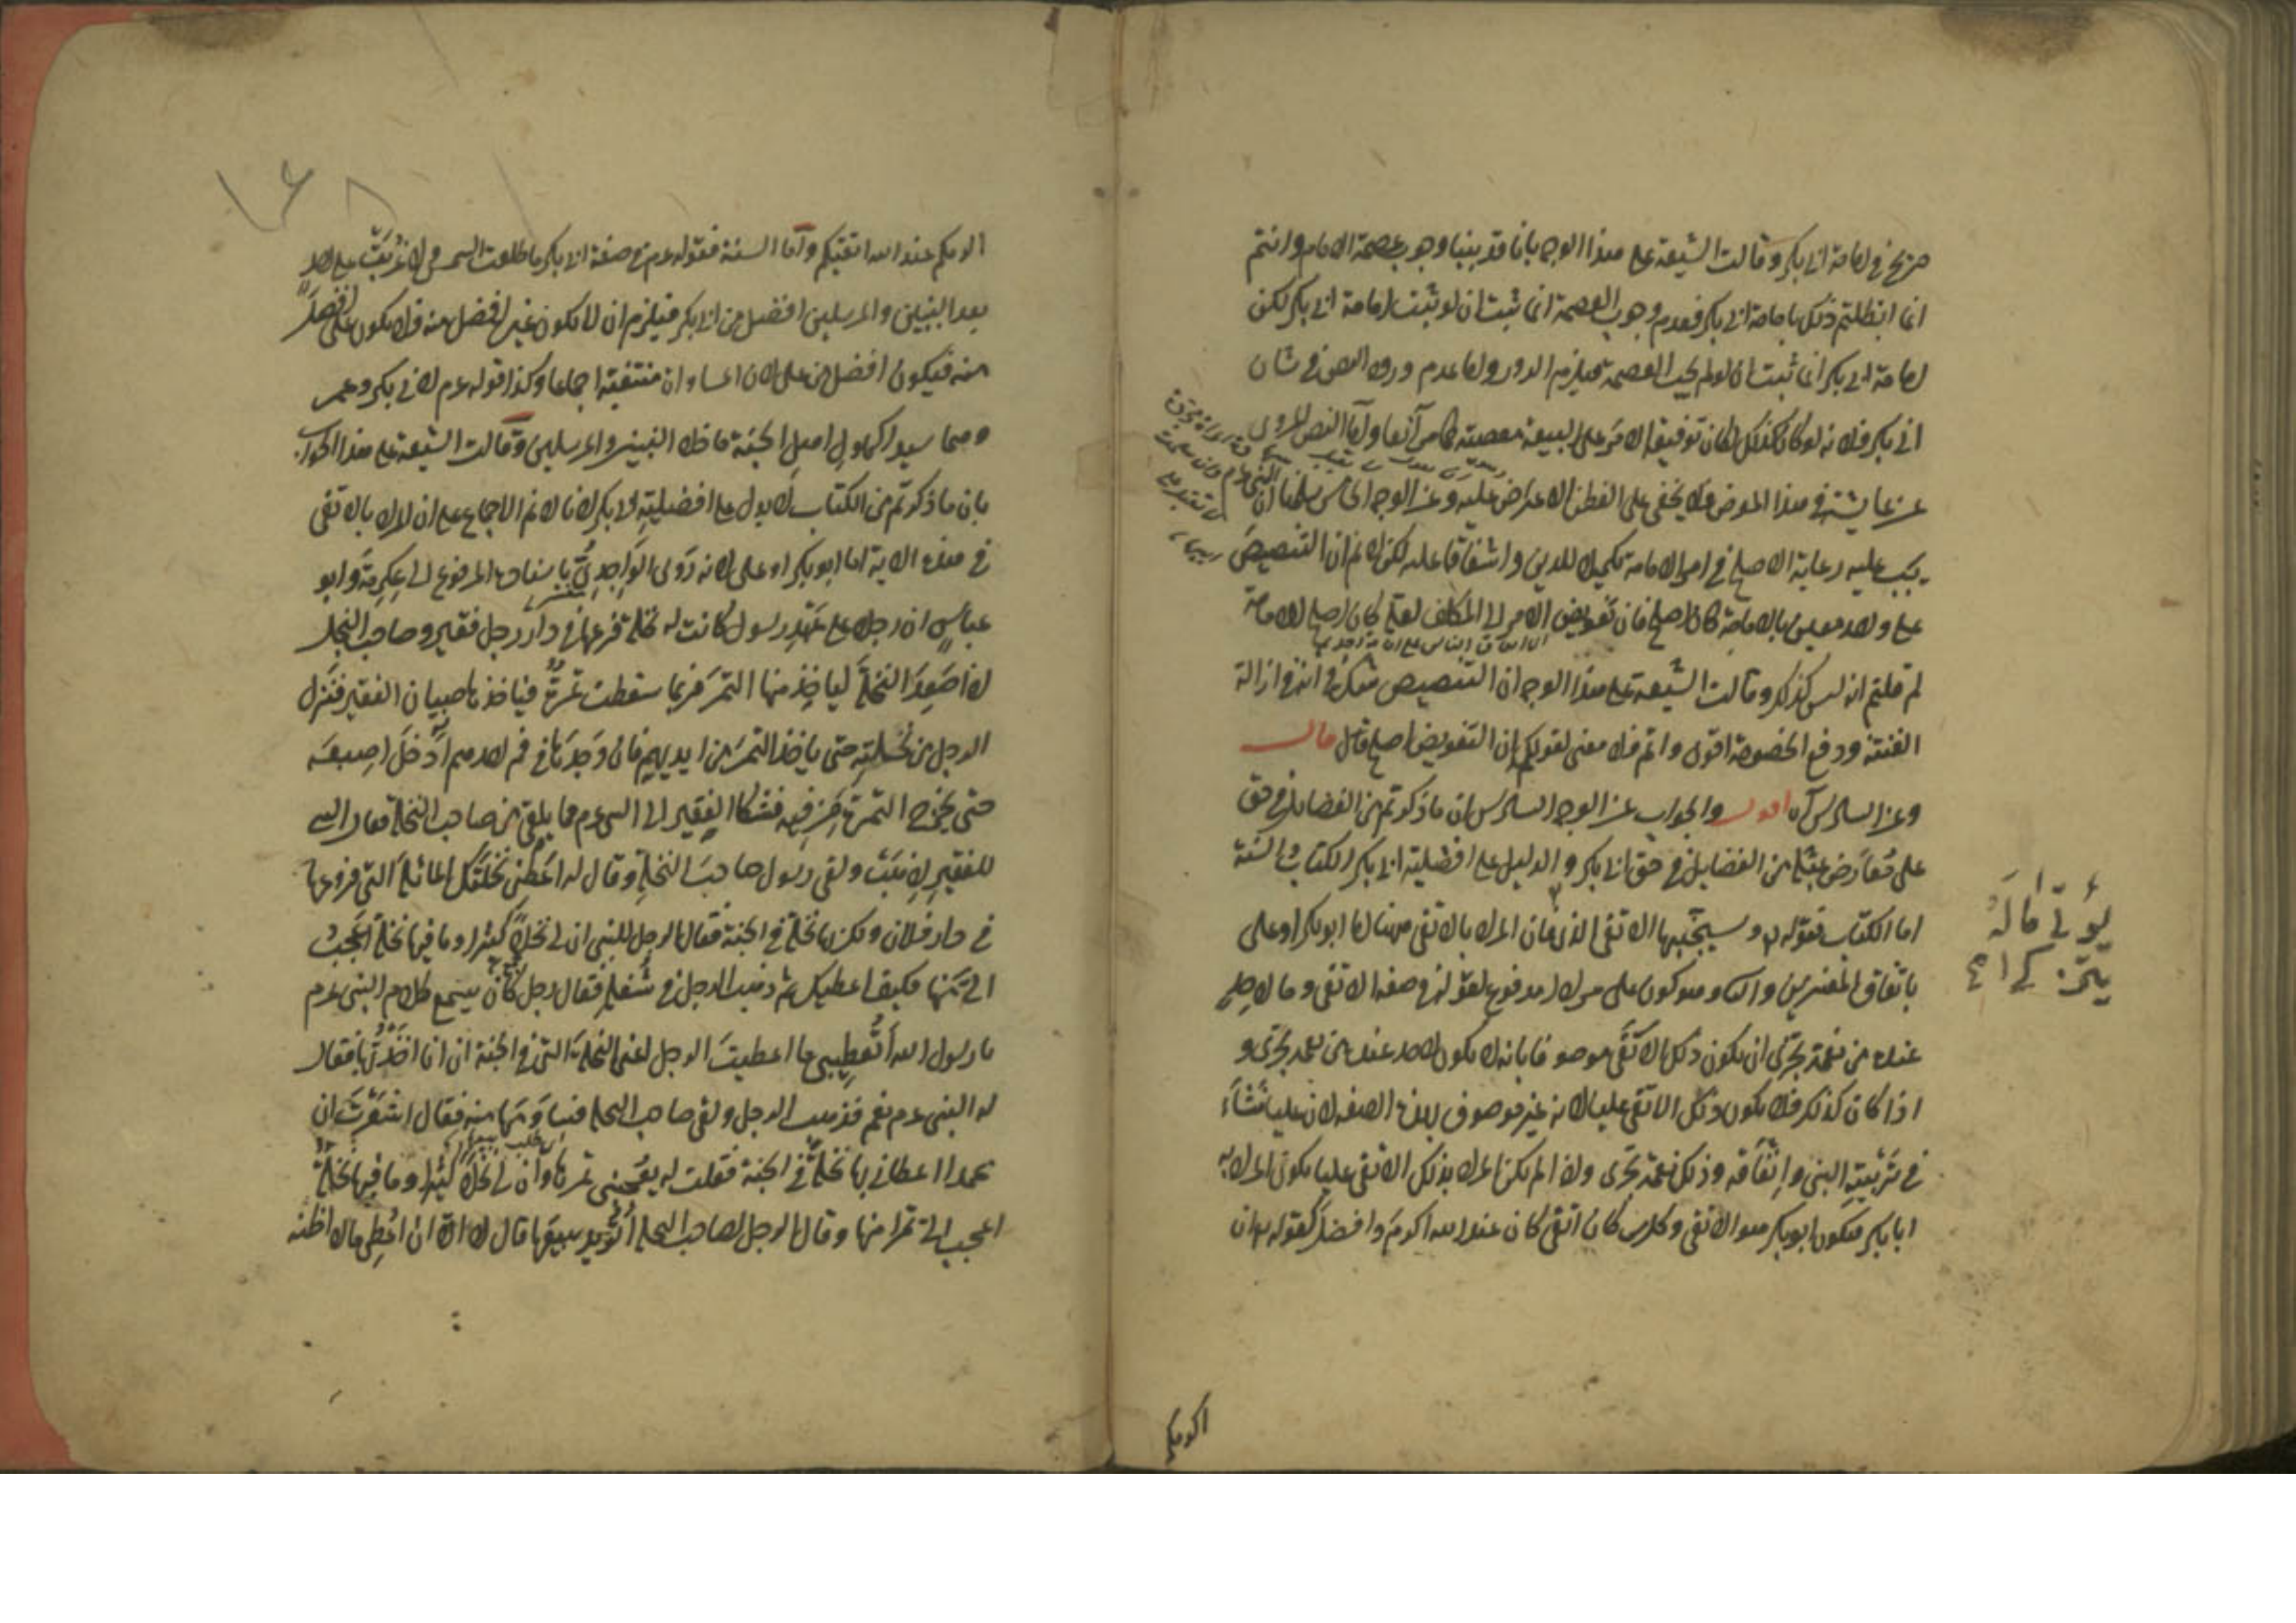 صريح في امامة ابي بكر وقالت الشيعة على هذا الوجه بانا قد بينا وجوب عصمة الامام وانتم
انما ابطلتم ذلك بامامة ابي بكر فعدم وجوب العصمة انما ثبت ان لو ثبت امامة ابي بكر لكن
امامة ابي بكر انما ثبت ان لو لم يجب العصمة فيلزم الدور واما عدم ورود النص في شان
ابي بكر فلانه لو كان كذلك لكان توقيفه الامر على البيعة معصية كما مر آنفا واما النص المروى
عن عايشة في هذا المعرض فلا يخفى على الفطن الاعتراض عليه وعن الوجه الخامس سلمنا ان النبي عم
يجب عليه رعاية الاصلح في امر الامامة تكميلا للدين واشفاقا عليه لكن لا نم ان التنصيص
على واحد معين بالامامة كان اصلح فان تفويض الامر الى المكلف لعله كان اصلح للامامة
لم قلتم انه ليس كذلك وقالت الشيعة على هذا الوجه ان التنصيص في ازالة
الفتنة ودفع الخصومة اقوى واتم فلا معنى لقولكم ان التفويض اصلح قال
وعن السادس آه اقول والجواب عن الوجه السادس ان ما ذكرتم من الفضايل في حق
على معارض بمثله من الفضايل في حق ابي بكر والدليل على افضلية ابي بكر الكتاب والسنة
اما الكتاب فقوله تع وسيجنبها الاتقى الذي فان المراد بالاتقى ههنا اما ابو بكر او على
باتفاق المفسرين والثانى وهو كون على مرادا مدفوع لقوله في صفة الاتقى وما لاحد
عنده من نعمة تجزى ان يكون ذلك الاتقى موصوفا بانه لا يكون لاحد عنده من نعمة تجزى و
اذا كان كذلك فلا يكون ذلك الاتقى عليا لانه غير موصوف بهذه الصفة لان عليا نشاء
في تربية النبي وانفاقه وذلك نعمة تجزى واذا لم يكن المراد بذلك الاتقى عليا يكون المراد به
ابا بكر فيكون ابو بكر هو الاتقى وكل من كان اتقى كان عند الله اكرم وافضل لقوله تع ان
يؤتى ماله
اكرمكم
اكرمكم عند الله اتقيكم واما السنة فقوله عم في صفة ابي بكر ما طلعت الشمس ولا غربت على احد
بعد النبيين والمرسلين افضل من ابي بكر فيلزم ان لا يكون غيره افضل منه فلا يكون على افضل
منه فيكون افضل من على لان المساواة منتفية اجماعا وكذا قوله عم لابي بكر وعمر
هما سيدا كهول اهل الجنة ما خلا النبيين والمرسلين وقالت الشيعة على هذا الجواب
بان ما ذكرتم من الكتاب لا يدل على افضلية ابي بكر لانا لا نم الاجماع على ان المراد بالاتقى
في هذه الاية اما ابو بكر او على لانه روى الواحدى باسناده المرفوع الى عكرمة وابن
عباس ان رجلا على عهد رسول كانت له نخلة فرعها في دار رجل فقير وصاحب النخل
اذا صعد النخلة لياخذ منها التمر فربما سقطت تمرة فياخذها صبيان الفقير فنزل
الرجل من نخلته حتى ياخذ التمر من ايديهم فان وجدها في فم احدهم ادخل اصبعه
حتى يخرج التمرة من فيه فشكا الفقير الى النبي عم مما يلقى من صاحب النخلة فقال النبي
للفقير اذهب ولقى رسول صاحب النخلة وقال له اعطنى نخلتك المائلة التي فروعها
في دار فلان ولك بها نخلة في الجنة فقال الرجل للنبي ان لى نخلا كثيرا وما فيها نخلة اعجب
الى منها فكيف اعطيك ثم ذهب الرجل في شغله فقال رجل كان يسمع كلام النبي عم
يا رسول الله اتعطينى ما اعطيت الرجل اعنى النخلة التي في الجنة ان انا اخذتها فقال
له النبي عم نعم فذهب الرجل ولقى صاحب النخلة فساومها منه فقال اشعرت ان
محمدا اعطانى بها نخلة في الجنة فقلت له يعجبنى تمرها وان لى نخلا كثيرا وما فيها نخلة
اعجب الى تمرا منها وقال الرجل لصاحب النخلة اتريد بيعها قال لا الا ان اعطى مالا اظنه